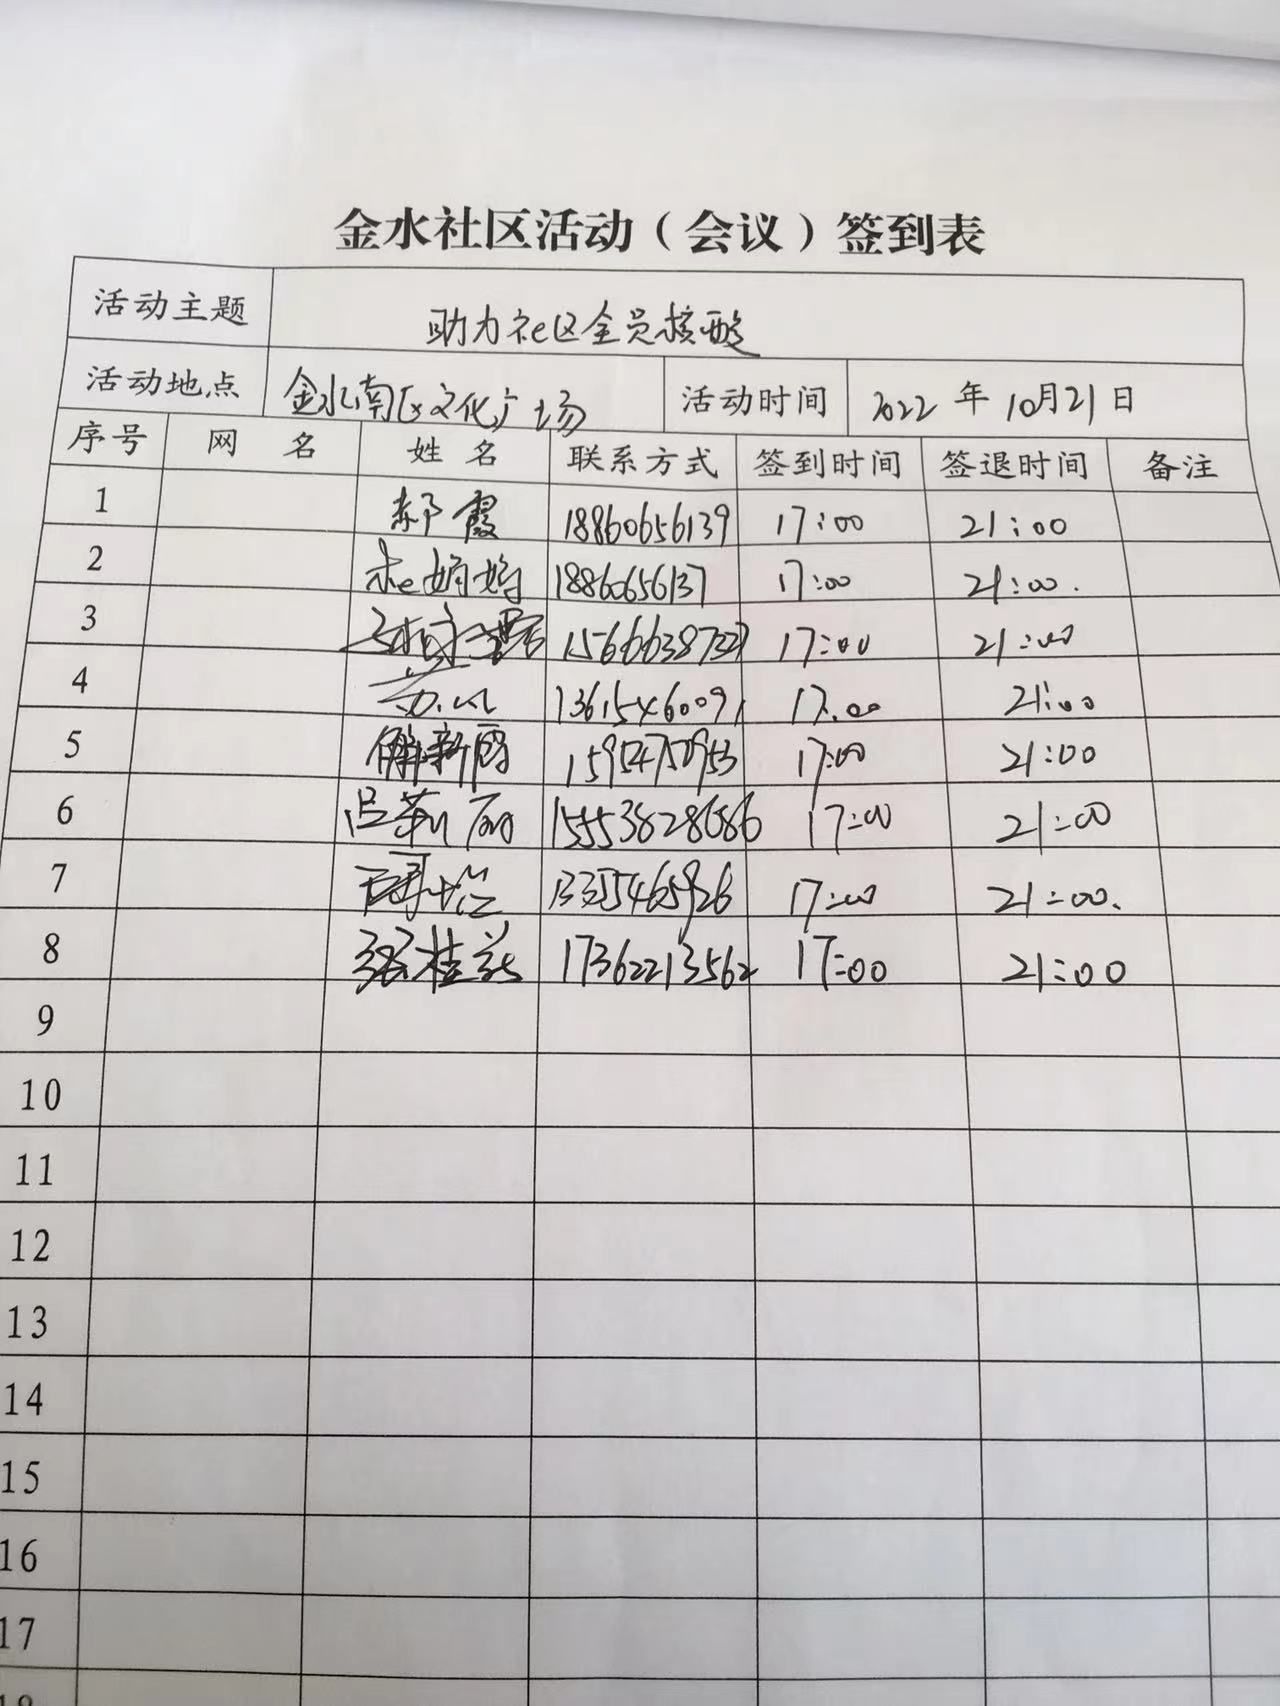 金水社区活动（会议）签到表
活动主题 助力社区全员核酸
活动地点 金水南区文化广场 活动时间 2022年10月21日
序号 网名 姓名 联系方式 签到时间 签退时间 备注
1 郝霞 18860656139 17:00 21:00
2 18860656137 17:00 21:00.
3 17:00 21:00
4 13615460091 17:00 21:00
5 解新丽 17:00 21:00
6 吕莉丽 15553828686 17:00 21:00
7 17:00 21:00.
8 张桂兰 17362213562 17:00 21:00
9
10
11
12
13
14
15
16
17
18